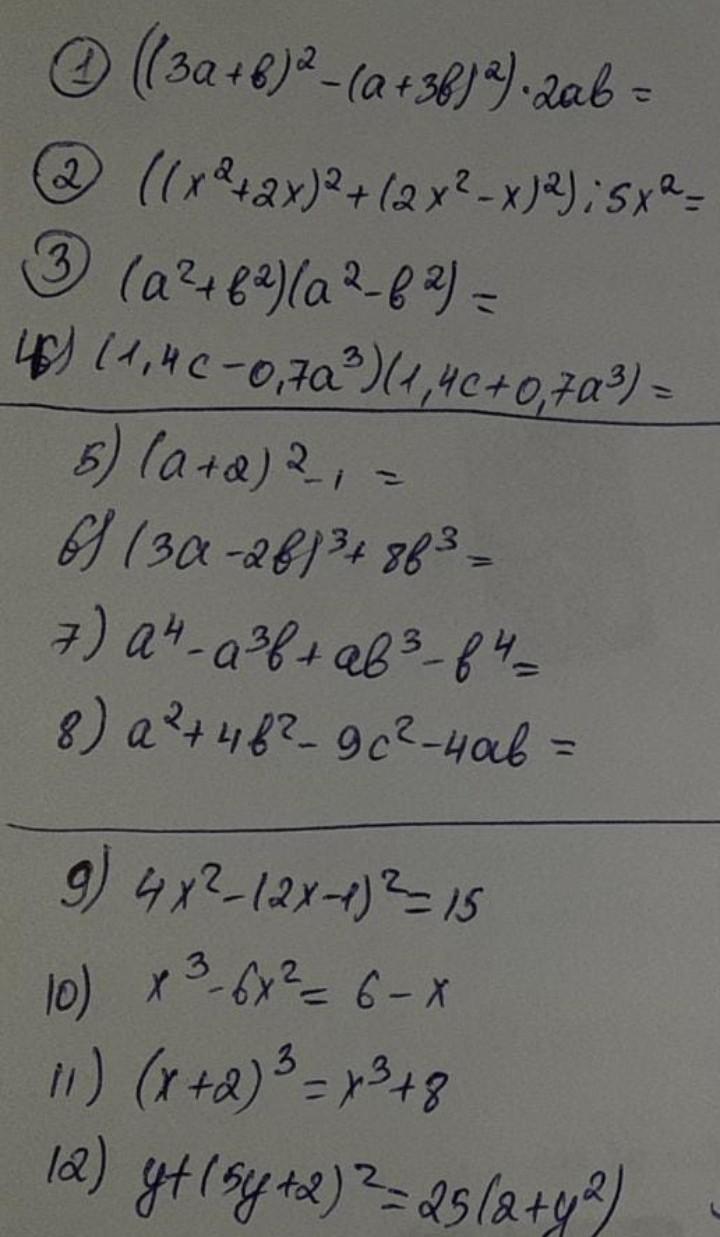 ① ((3a+b)² - (a+3b)²)·2ab =
② ((x²+2x)²+(2x²-x)²):5x²=
③ (a²+b²)(a²-b²) =
4б) (1,4c-0,7a³)(1,4c+0,7a³) =
5) (a+2)² - 1 =
6) (3a-2b)³+8b³ =
7) a⁴-a³b+ab³-b⁴=
8) a²+4b²-9c²-4ab =
9) 4x²-(2x-1)²=15
10) x³-6x²= 6-x
11) (x+2)³=x³+8
12) y+(5y+2)²=25(2+y²)